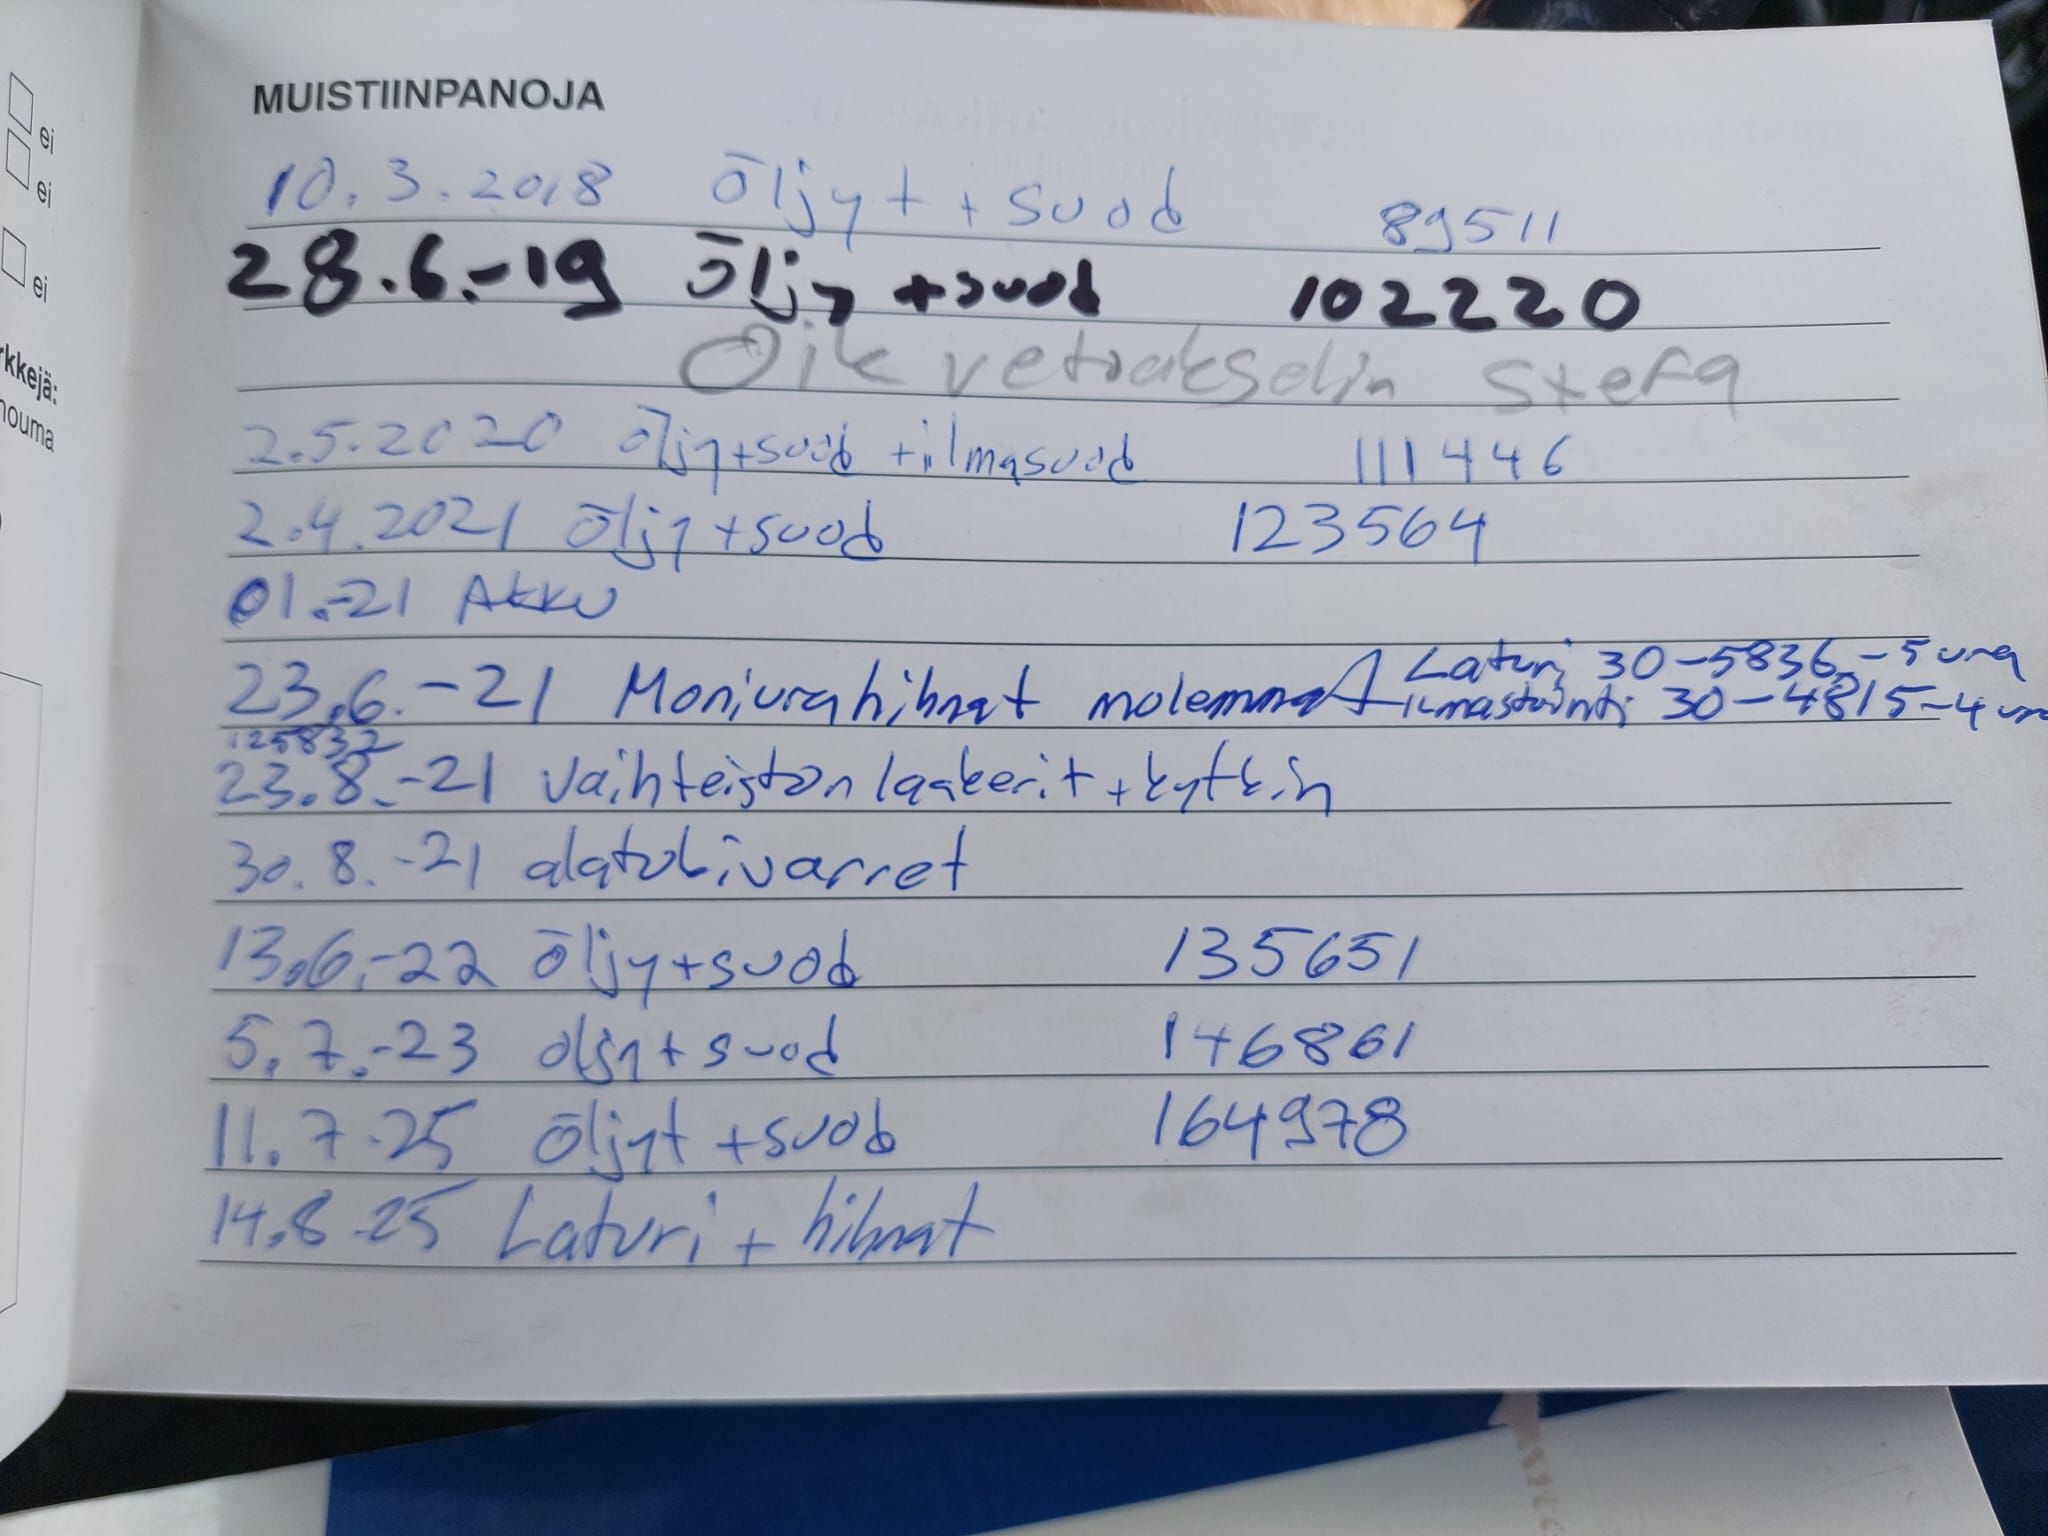 ei
ei
ei
rkkejä:
houma
MUISTIINPANOJA
10.3.2018 Öljyt + suod 89511
28.6.-19 Öljy + suod 102220
Oik vetoakselin stefa
2.5.2020 Öljy+suod +ilmasuod 111446
2.4.2021 Öljy +suod 123564
01.-21 Akku
23.6.-21 Moniurahihnat molemmat Laturi 30-5836-5ura
ilmastointi 30-4815-4ura
125832
23.8.-21 Vaihteiston laakerit + kytkin
30.8.-21 alatukivarret
13.6.-22 Öljy+suod 135651
5.7.-23 öljy+suod 146861
11.7-25 Öljyt +suod 164978
14.8-25 Laturi + hihnat